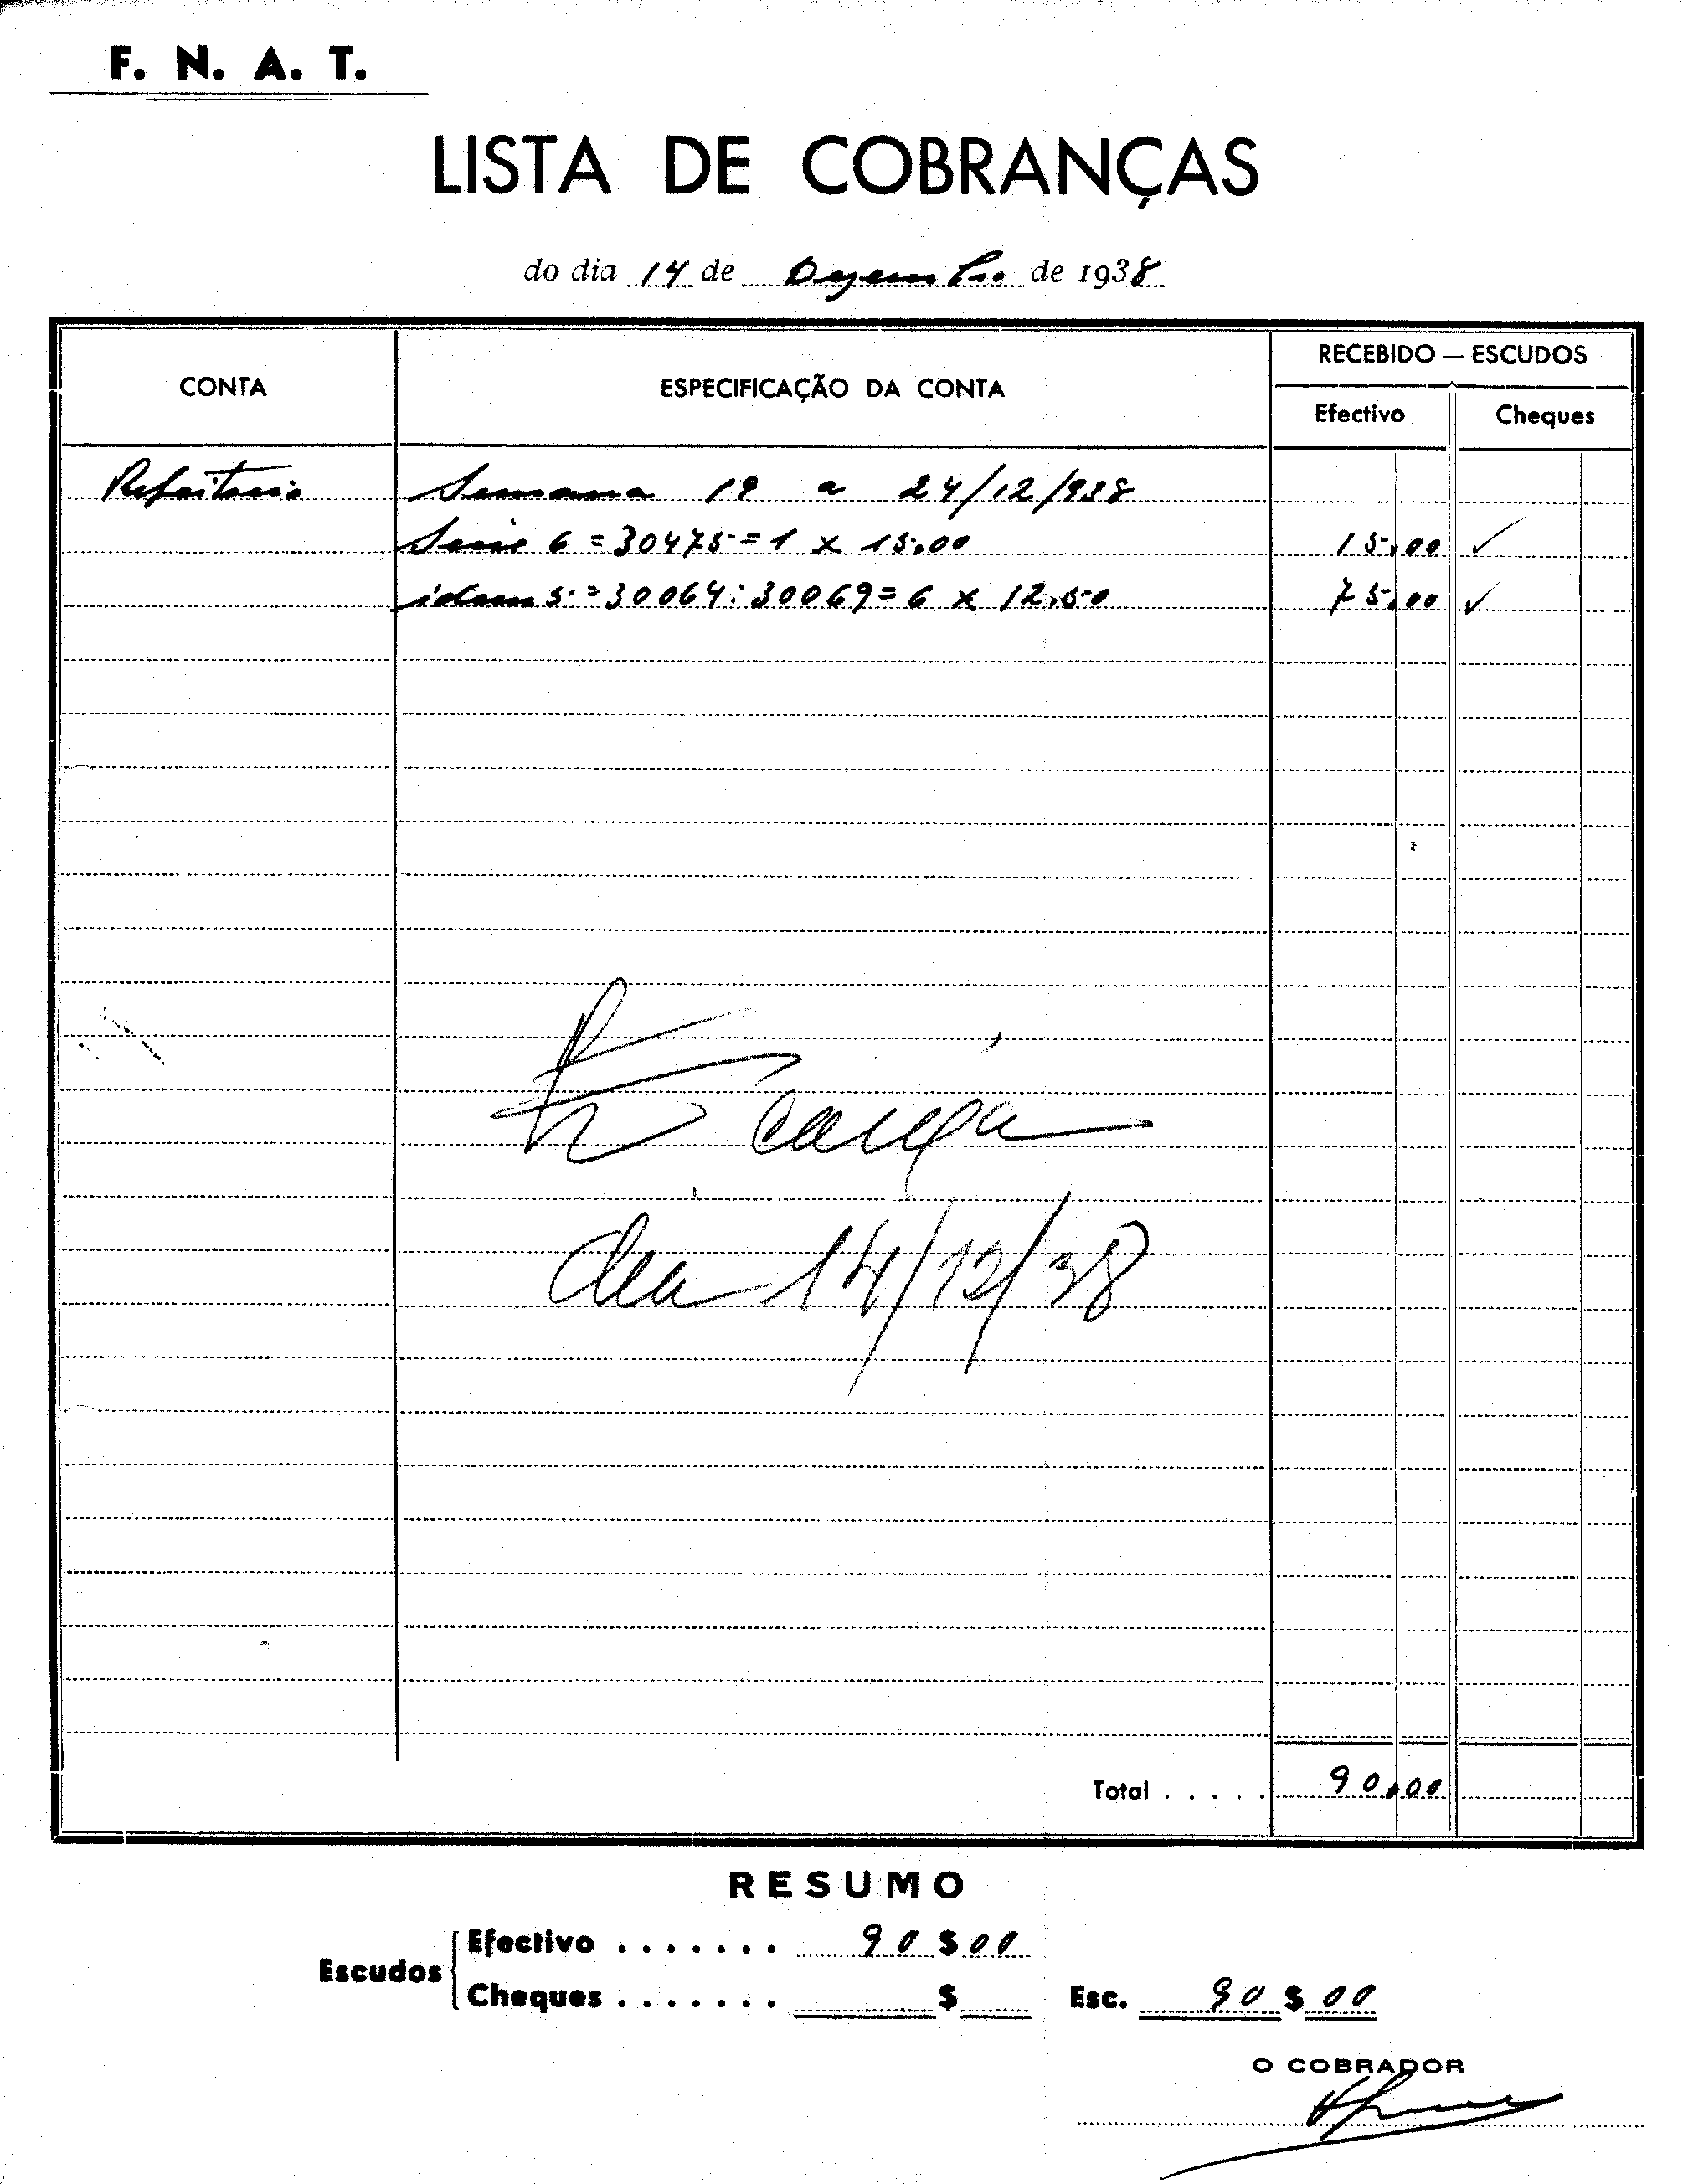 F. N. A. T.
LISTA DE COBRANÇAS
do dia 14 de Dezembro de 1938
CONTA
ESPECIFICAÇÃO DA CONTA
RECEBIDO — ESCUDOS
Efectivo
Cheques
Refeitorio Semana 19 a 24/12/938
Serie 6 = 30475 = 1 x 15,00 15,00 ✓
idem 5 = 30064:30069 = 6 x 12,50 75,00 ✓
Caixa
dia 14/12/38
Total . . . . . 90,00
RESUMO
Escudos
Efectivo . . . . . . . 90$00
Cheques . . . . . . . $
Esc. 90$00
O COBRADOR